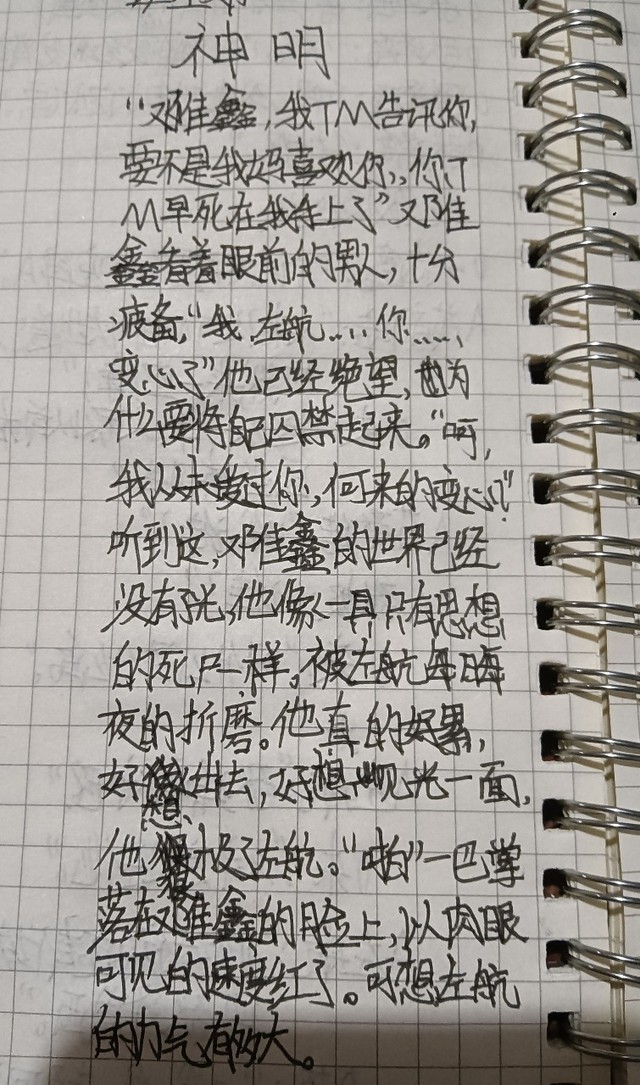 神明
“邓佳鑫,我TM告讯你,
要不是我妈喜欢你,,你T
M早死在我手上了”邓佳
鑫看着眼前的男人,十分
疲备,“我,左航....你.....
变心了”他已经绝望,为
什么要将自己囚禁起来。“呵,
我从未爱过你,何来的变心?”
听到这,邓佳鑫的世界已经
没有了光,他像一具只有思想
的死尸一样。被左航每晦
夜的折磨。他真的好累,
好想出去,好想见光一面,
他极了左航。“啪”一巴掌
落在邓佳鑫的脸上,以肉眼
可见的速度红了。可想左航
的力气有多大。